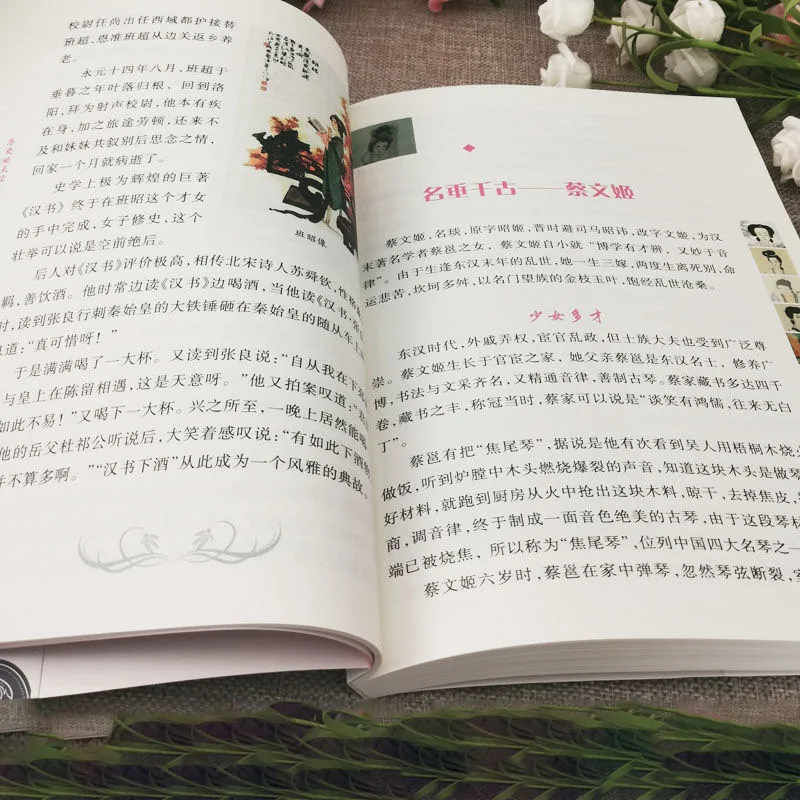 校尉任尚出任西域都护接替
班超，恩准班超从边关返乡养
老。
永元十四年八月，班超于
垂暮之年叶落归根，回到洛
阳，拜为射声校尉，他本有疾
在身，加之旅途劳顿，还来不
及和妹妹共叙别后思念之情，
回家一个月就病逝了。
史学上极为辉煌的巨著
《汉书》终于在班昭这个才女
的手中完成，女子修史，这个
壮举可以说是空前绝后。
班昭像
后人对《汉书》评价极高，相传北宋诗人苏舜钦，性格
羁，善饮酒。他时常边读《汉书》边喝酒，当他读《汉书·张
时，读到张良行刺秦始皇的大铁锤砸在秦始皇的随从车上
道：“真可惜呀！”
于是满满喝了一大杯。又读到张良说：“自从我在下
与皇上在陈留相遇，这是天意呀。”他又拍案叹道：“
如此不易！”又喝下一大杯。兴之所至，一晚上居然能
他的岳父杜祁公听说后，大笑着感叹说：“有如此下酒
不算多啊。”“汉书下酒”从此成为一个风雅的典故。
名垂千古——蔡文姬
蔡文姬，名琰，原字昭姬，晋时避司马昭讳，改字文姬，为汉
末著名学者蔡邕之女，蔡文姬自小就“博学有才辨，又妙于音
律”。由于生逢东汉末年的乱世，她一生三嫁，两度生离死别，命
运悲苦，坎坷多舛，以名门望族的金枝玉叶，饱经乱世沧桑。
少女多才
东汉时代，外戚弄权，宦官乱政，但士族大夫也受到广泛尊
崇。蔡文姬生长于官宦之家，她父亲蔡邕是东汉名士，修养广
博，书法与文采齐名，又精通音律，善制古琴。蔡家藏书多达四千
卷，藏书之丰，称冠当时，蔡家可以说是“谈笑有鸿儒，往来无白
丁”。
蔡邕有把“焦尾琴”，据说是他有次看到吴人用梧桐木烧火
做饭，听到炉膛中木头燃烧爆裂的声音，知道这块木头是做琴
好材料，就跑到厨房从火中抢出这块木料，晾干，去掉焦皮，
商，调音律，终于制成一面音色绝美的古琴，由于这段琴材
端已被烧焦，所以称为“焦尾琴”，位列中国四大名琴之一
蔡文姬六岁时，蔡邕在家中弹琴，忽然琴弦断裂，